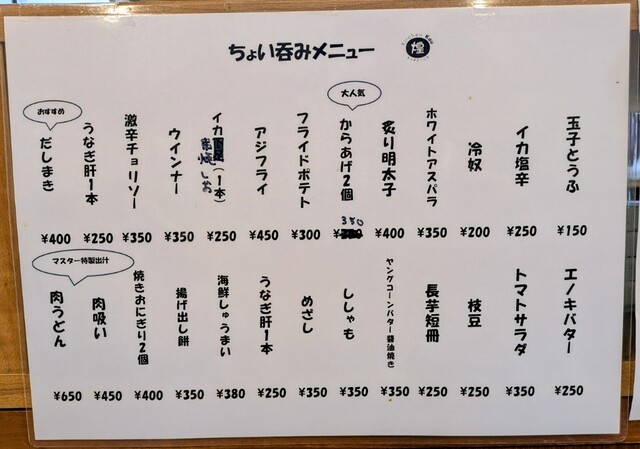 ちょい呑みメニュー
煌
玉子とうふ ¥150
イカ塩辛 ¥250
冷奴 ¥200
ホワイトアスパラ ¥350
炙り明太子 ¥400
大人気
からあげ2個 350
フライドポテト ¥300
アジフライ ¥450
イカ 串焼しお (1本) ¥250
ウインナー ¥350
激辛チョリソー ¥350
うなぎ肝1本 ¥250
おすすめ
だしまき ¥400
エノキバター ¥250
トマトサラダ ¥350
枝豆 ¥250
長芋短冊 ¥250
ヤングコーンバター醤油焼き ¥350
ししゃも ¥350
めざし ¥350
うなぎ肝1本 ¥250
海鮮しゅうまい ¥380
揚げ出し餅 ¥350
焼きおにぎり2個 ¥400
マスター特製出汁
肉吸い ¥450
肉うどん ¥650